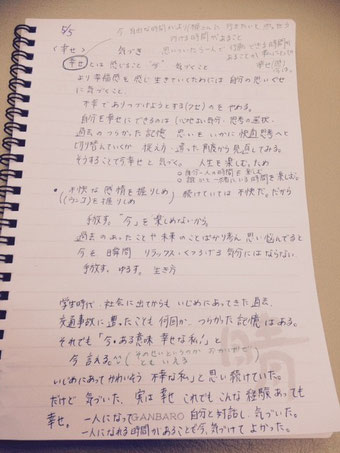 5/5
今 自由な時間がより好きな人に 行きたいと
行ける時間があること
〈幸せ〉 気づき 思いついたら一人で行動できる時間が
あることが 幸せ
幸せとは感じること "今" 気づくこと
より幸福感を感じ生きていくためには自分の思いぐせ
に気づくこと
不幸でありつづけようとする(クセ)のをやめる。
自分を幸せにできるのは(心地よい)自分。思考の選択。
過去のつらかった記憶 思いをいかに快適思考へと
切り替えていくか 捉え方 違った角度から見直してみる。
そうすることで今幸せと気づく。 人生を楽しむため
◎自分一人の時間を楽しむ
◎誰かと一緒にいる時間を楽しむ。
・不快な感情を握りしめ 続けていては不快だ。だから
((ウンコ)を握りしめ)
手放す。"今"を楽しめないから。
過去のあったことや未来のことばかり考え思い悩んでると
今を 瞬間 リラックス・くつろげる自分にはならない。
手放す。ゆるす。生き方
学生時代、社会に出てからもいじめにあってきた過去。
交通事故に遭ったことも何回か。つらかった記憶はある。
それでも「今ある意味 幸せな私。」と
今 言える。(そのせいというのか おかげなのか ともいえる)
いじめにあってかわいそう 不幸な私」と思い続けていた。
だけど 気づいた。実は幸せ これでもこんな経験あっても
幸せ。一人になって 自分と対話し、気づいた。
GANBARO
一人になれる時間があることも今、気づけてよかった。
晴